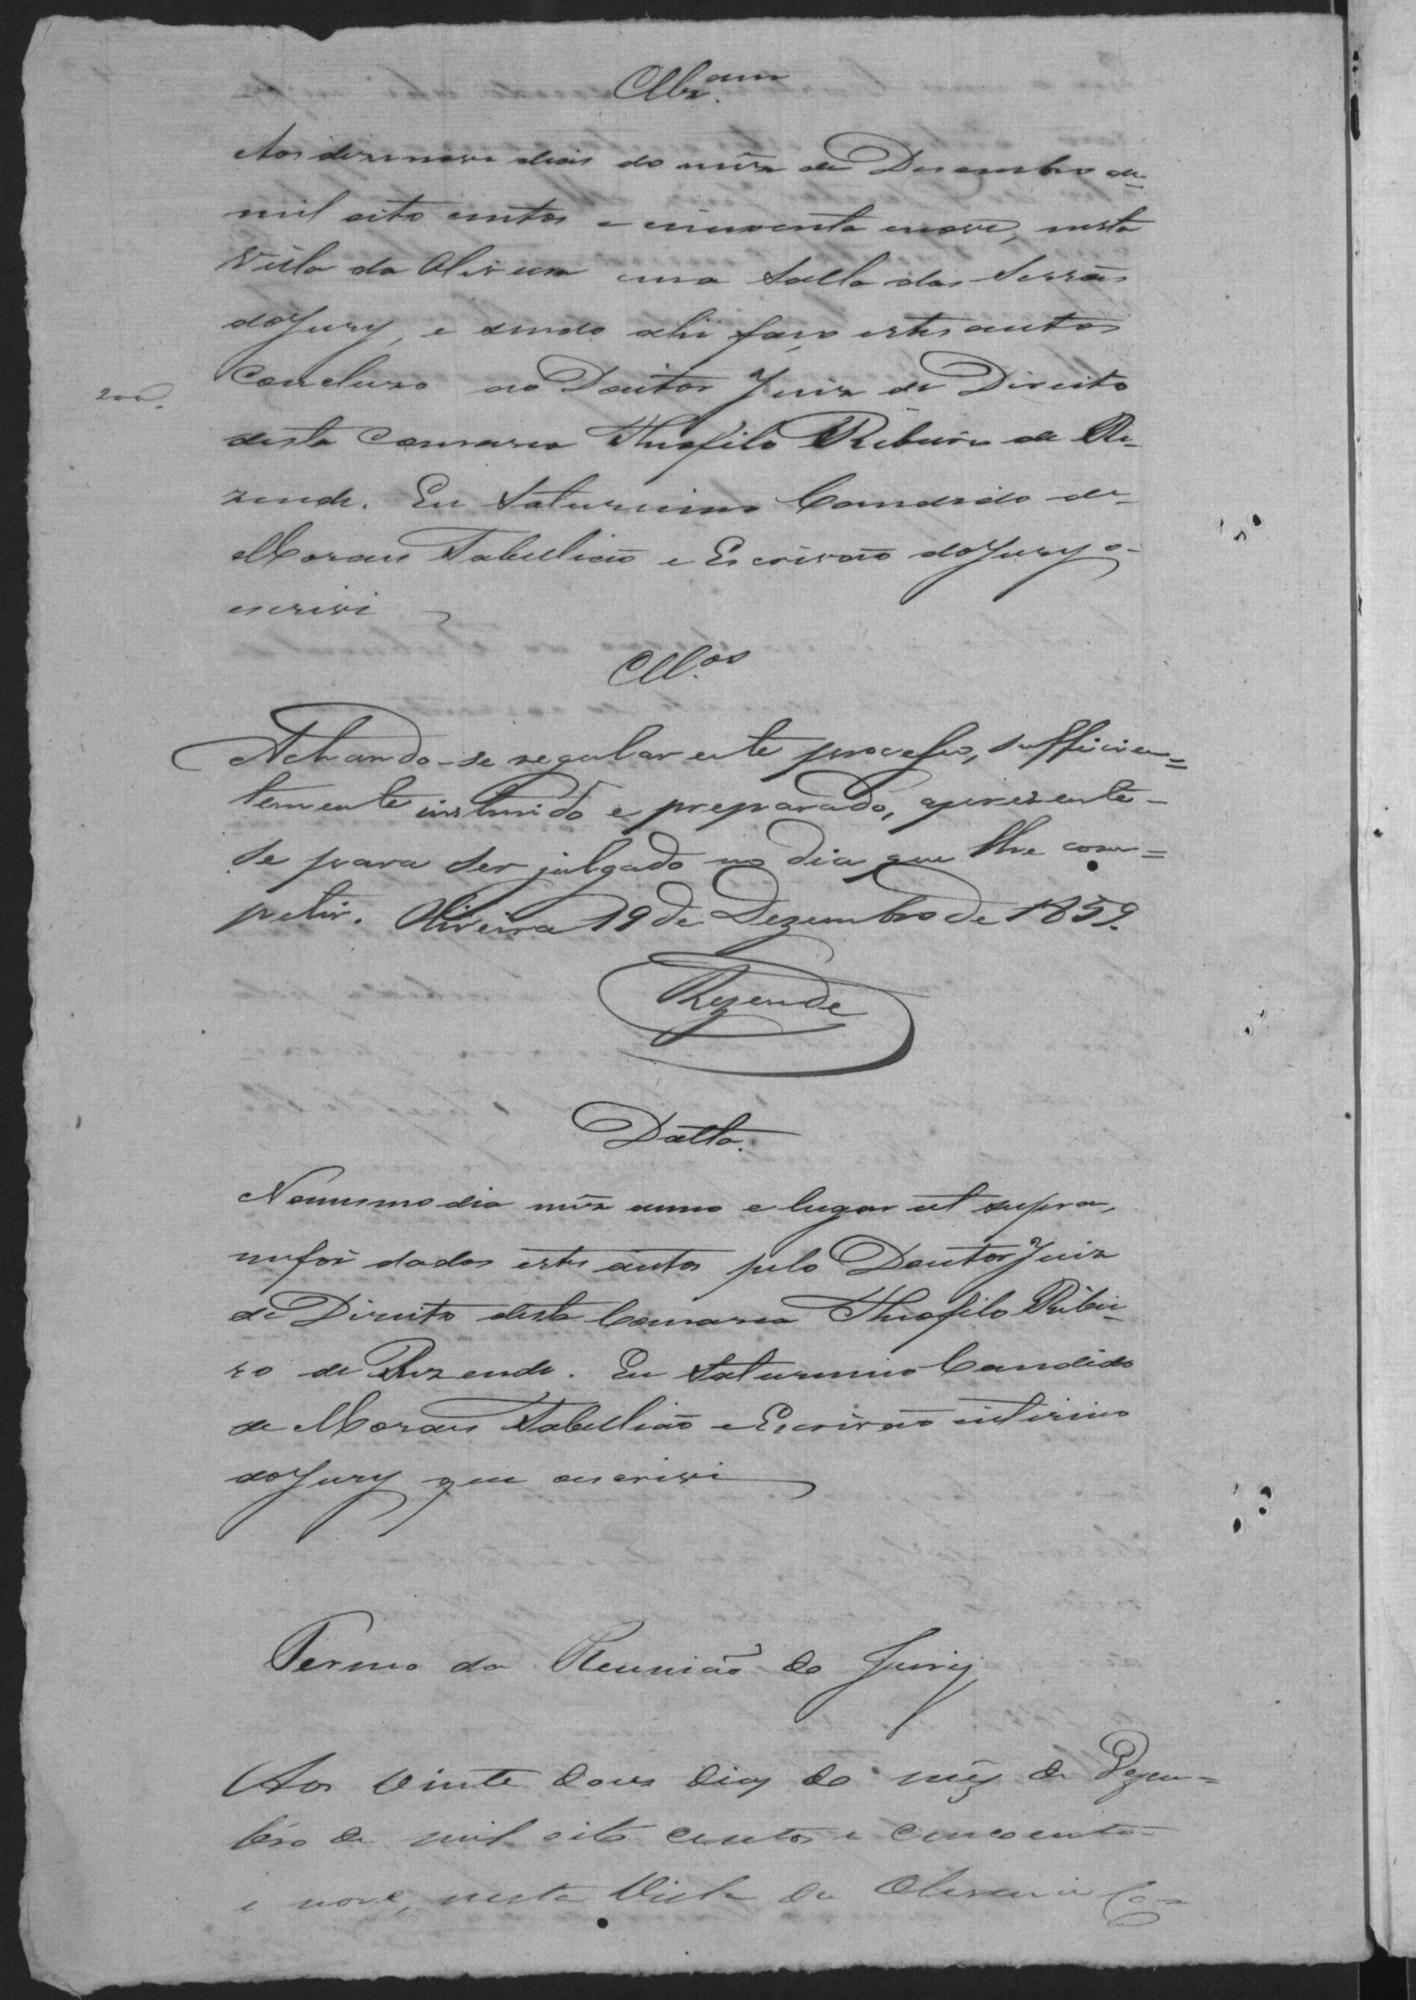 Aos desenove dias do mez de Desembro de
mil oito centos e cincoenta enove, nesta
Villa da Oliveira ena Salla das Sessões
doJury, e sendo ahi faço estes autos
200.
Concluzo ao Doutor Juiz de Direito
desta Comarca Theofilo Ribeiro de Re-
zende. Eu Saturnino Candido de
Moraes Tabellião e Escrivão doJury o
escrivi
Cll.os
Achando-se regular este processo, sufficien=
temente instruido e preparado, aprezente-
se para ser julgado no dia que lhe com=
petir. Oliveira 19 de Dezembro de 1859.
Rezende
Datta.
Nomesmo dia mez anno e lugar ut supra,
mefoi dados estes autos pelo Doutor Juiz
de Direito desta Comarca Theofilo Ribei-
ro de Rezende. Eu Saturnino Candido
de Moraes Tabellião e Escrivão interino
doJury que escrivi
Termo da Reunião do Jury
Aos vinte dous dias do mez de Dezem=
bro de mil oito centos e cincoenta
e nove, nesta Villa da Oliveira